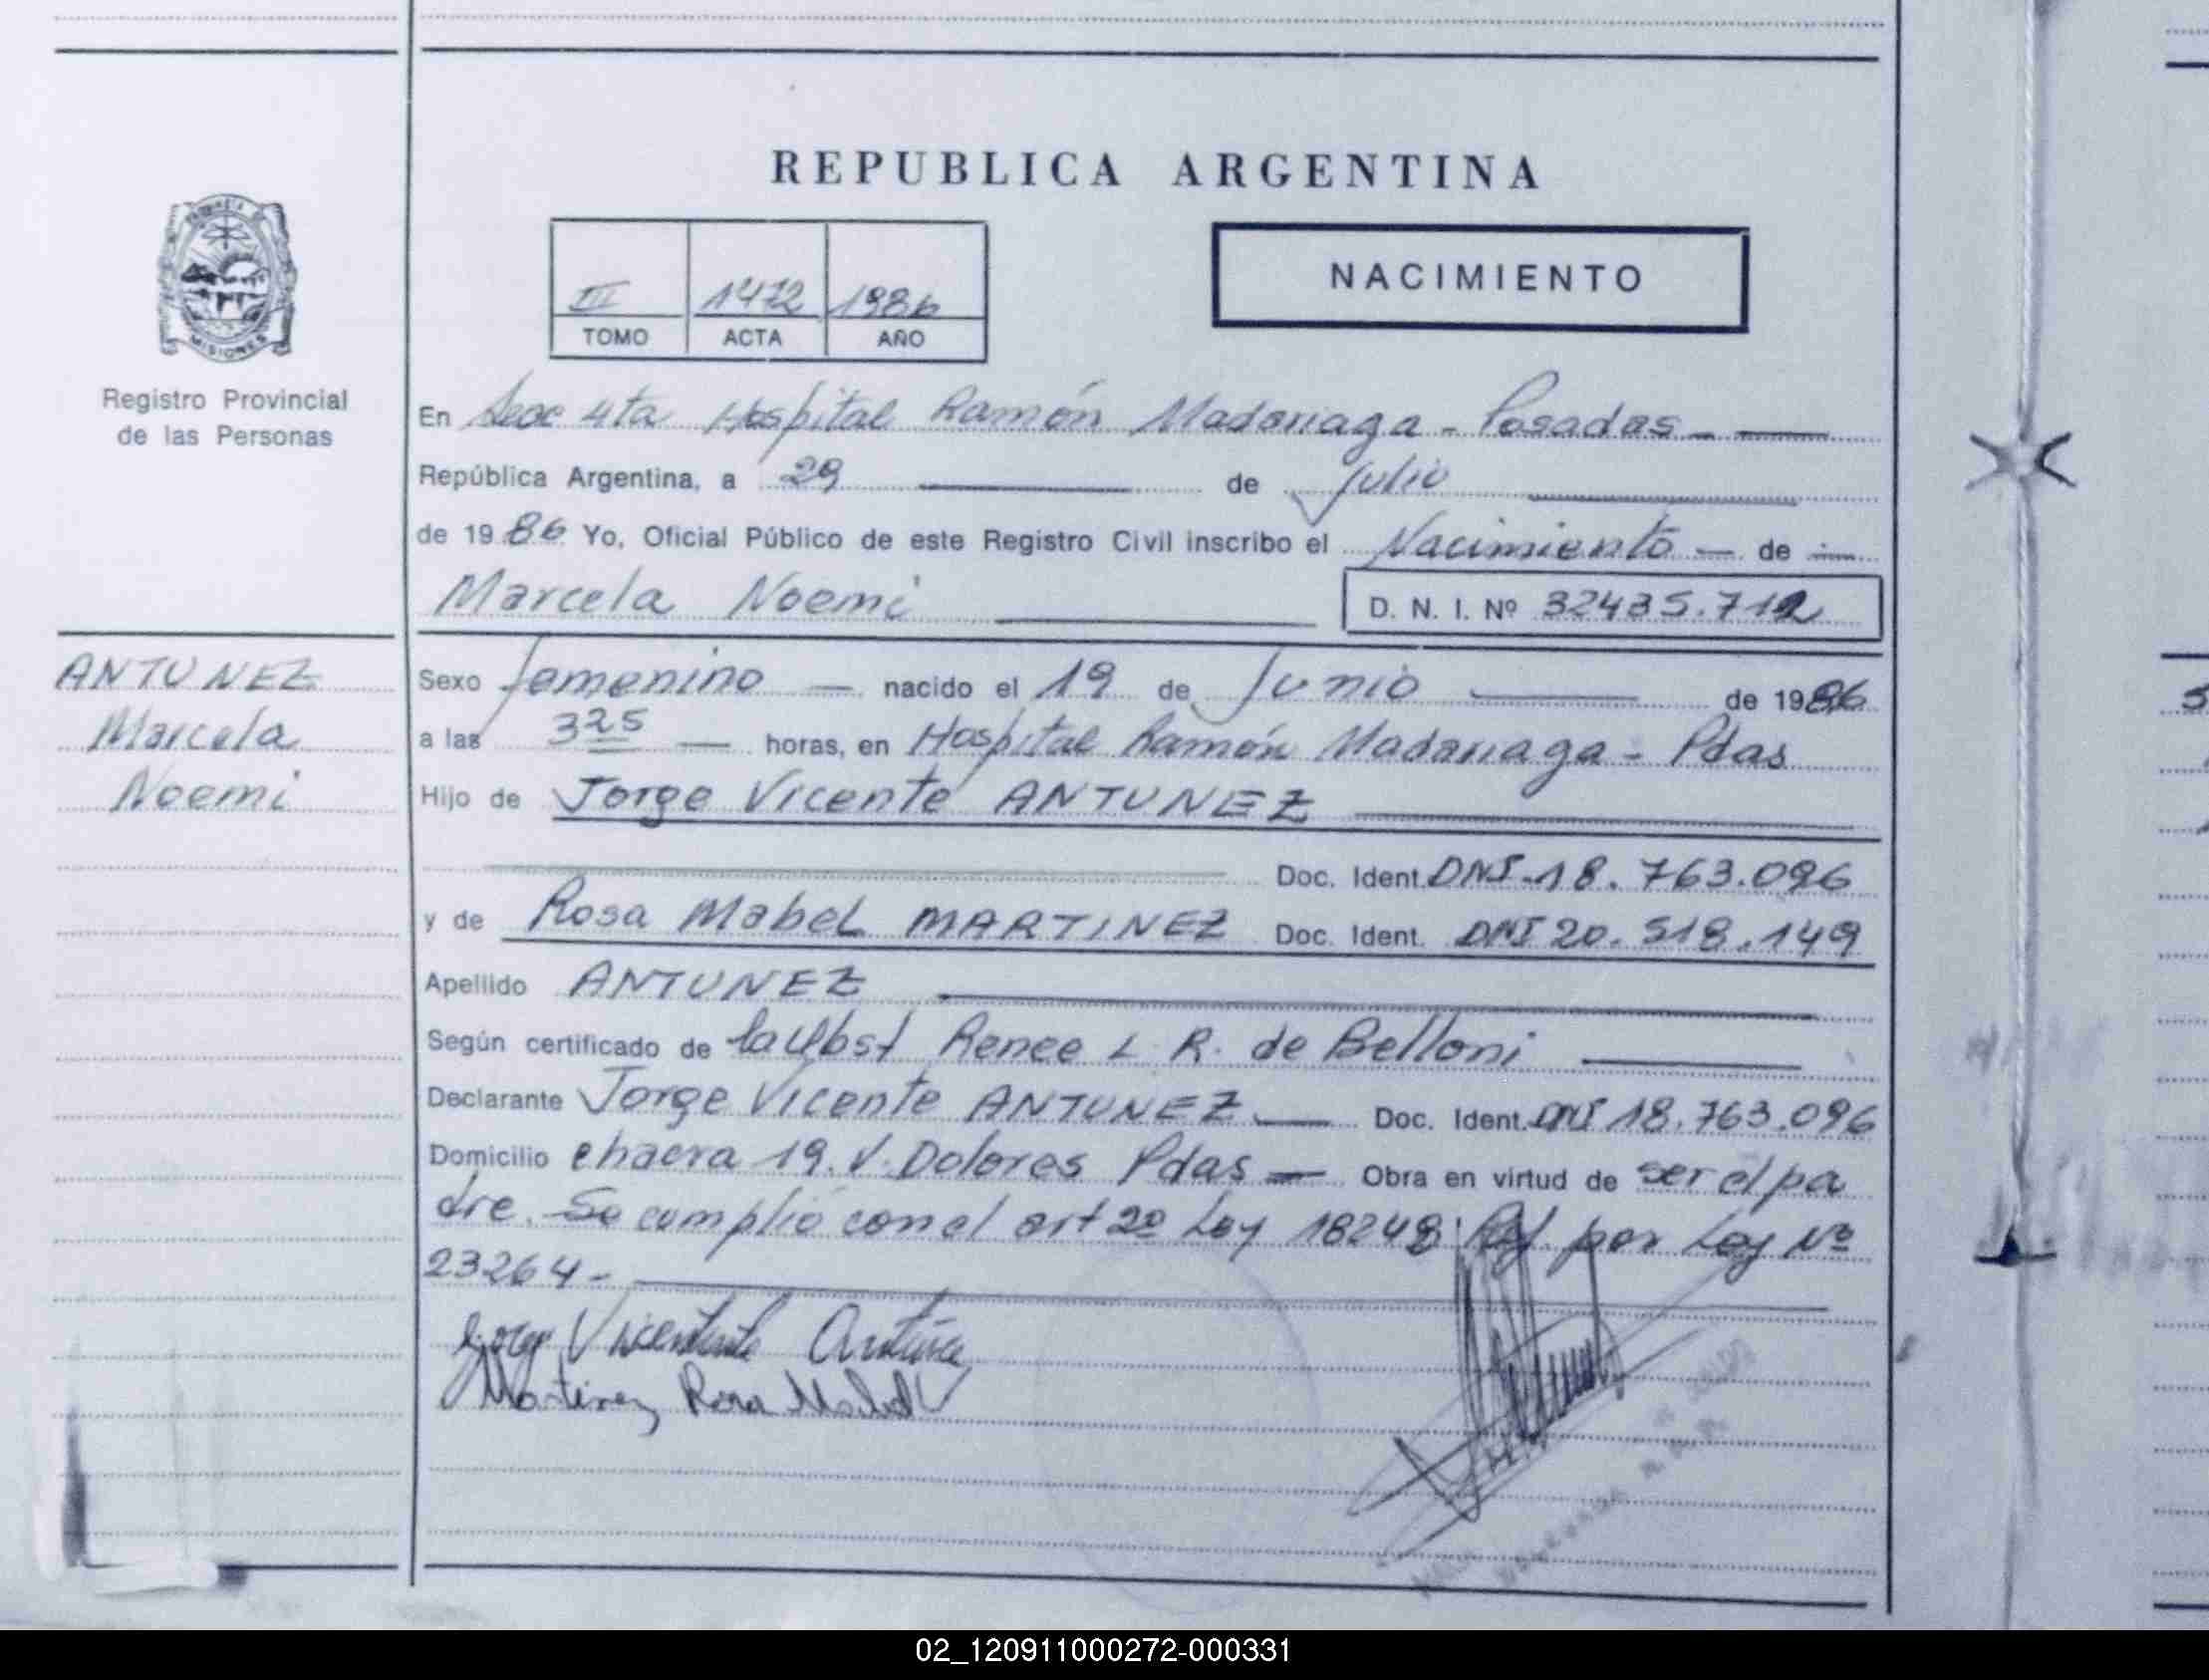 REPUBLICA ARGENTINA
III 1472 1986
TOMO ACTA AÑO
NACIMIENTO
MISIONES
Registro Provincial
de las Personas
En Secc 4ta Hospital Ramón Madariaga - Posadas
República Argentina, a 29 de Julio
de 1986 Yo, Oficial Público de este Registro Civil inscribo el Nacimiento de
Marcela Noemi D. N. I. Nº 32435.712
ANTUNEZ
Marcela
Noemi
Sexo femenino nacido el 19 de Junio de 1986
a las 3 25 horas, en Hospital Ramón Madariaga - Pdas
Hijo de Jorge Vicente ANTUNEZ
Doc. Ident. DNI-18.763.096
y de Rosa Mabel MARTINEZ Doc. Ident. DNI 20.518.149
Apellido ANTUNEZ
Según certificado de la Obst Renee L. R. de Belloni
Declarante Jorge Vicente ANTUNEZ Doc. Ident. DNI 18.763.096
Domicilio chacra 19. V. Dolores Pdas Obra en virtud de ser el pa
dre. Se cumplió con el art 2º Ley 18248 Ref. por Ley Nº
23264-
Vicentente
Martinez Rosa Mabel
02_120911000272-000331